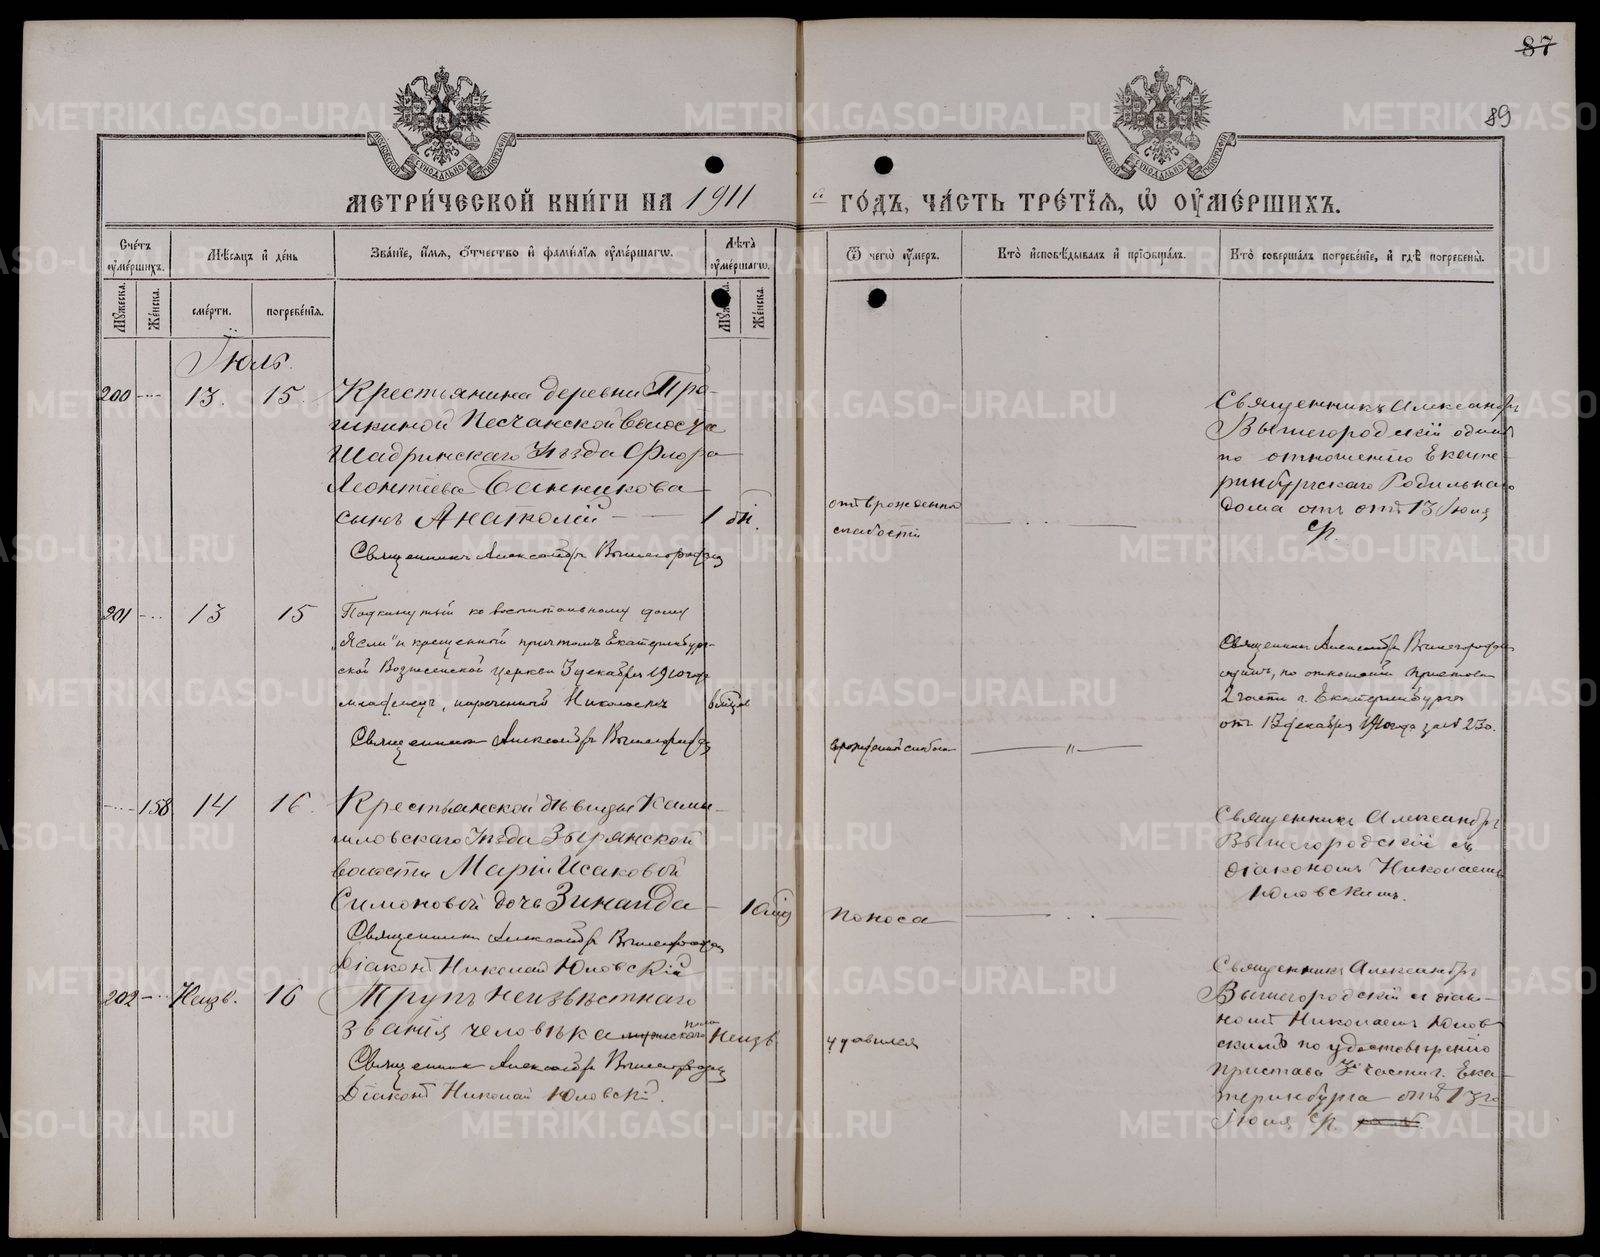 87
89
МОСКОВСКОЙ СѴНОДАЛЬНОЙ ТИПОГРАФІИ
МОСКОВСКОЙ СѴНОДАЛЬНОЙ ТИПОГРАФІИ
МЕТРИ́ЧЕСКОЙ КНИ́ГИ НА 1911
й ГО́ДЪ, ЧА́СТЬ ТРЕ́ТІЯ, Ѡ ОУ҆МЕ́РШИХЪ.
Сче́тъ оу҆ме́ршихъ.
Мѣ́сяцъ и҆ де́нь
Зва́ніе, и҆́мя, ѻ҆́тчество и҆ фами́лія оу҆ме́ршагѡ.
Лѣ́та оу҆ме́ршагѡ.
Ѿ чегѡ̀ оу҆́меръ.
Кто̀ и҆сповѣ́дывалъ и҆ прїѡбща́лъ.
Кто̀ соверша́лъ погребе́ніе, и҆ гдѣ̀ погребены̀.
Мꙋ́жеска.
Же́нска.
сме́рти.
погребе́нія.
Мꙋ́жеска.
Же́нска.
Іюль.
200 13. 15.
Крестьянина деревни Про-
шкиной Песчанской волости
Шадринскаго Уѣзда Флора
Леонтіева Банникова
сынъ Анатолій 1 дн.
Священникъ Александръ Вышегородскій
отъ врожденной
слабости
Священникъ Александръ
Вышегородскій одинъ
по отношенію Екате-
ринбургскаго Родильнаго
дома отъ 13 Іюля
с/г.
201 13 15
Подкинутый къ воспитательному дому
„Ясли" и крещенный причтомъ Екатеринбург-
ской Вознесенской церкви 3 декабря 1910 года
младенецъ, нареченный Николаемъ
Священникъ Александръ Вышегородскій
врожденной слабости
Священникъ Александръ Вышегородскій
одинъ, по отношенію Пристава
2 части г. Екатеринбурга
декабря 1910 года за № 230.
158 14 16.
Крестьянской дѣвицы Камы-
шловскаго Уѣзда Зырянской
волости Маріи Исаковой
Симоновой дочь Зинаида
Священникъ Александръ Вышегородскій
Діаконъ Николай Юловскій
поноса
Священникъ Александръ
Вышегородскій съ
діакономъ Николаемъ
Юловскимъ.
202 Неизв. 16
Трупъ неизвѣстнаго
званія человѣка мужскаго пола Неизв.
Священникъ Александръ Вышегородскій
Діаконъ Николай Юловскій.
удавился
Священникъ Александръ
Вышегородскій съ діако-
номъ Николаемъ Юлов-
скимъ по удостовѣренію
Пристава 3й части г. Ека-
теринбурга отъ 13го
Іюля с/г.
METRIKI.GASO-URAL.RU